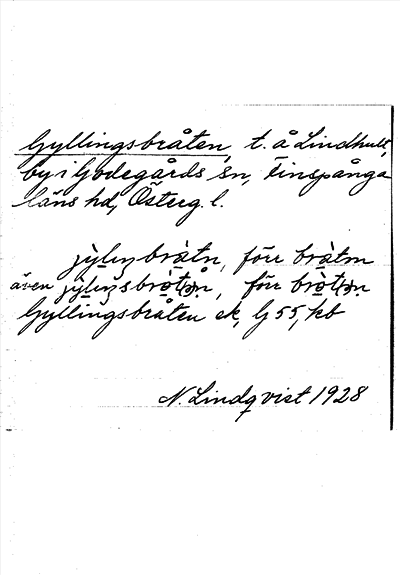 Gyllingsbråten, t. å Lindhult,
by i Godegårds sn, Finspånga
läns hd, Österg. l.
jỳliŋbrå̀tn, förr brå̀tın
även jỳliŋsbrå̀t(ə)n, förr brå̀t(ə)n
Gyllingsbråten ek, G 55, kb
N. Lindqvist 1928